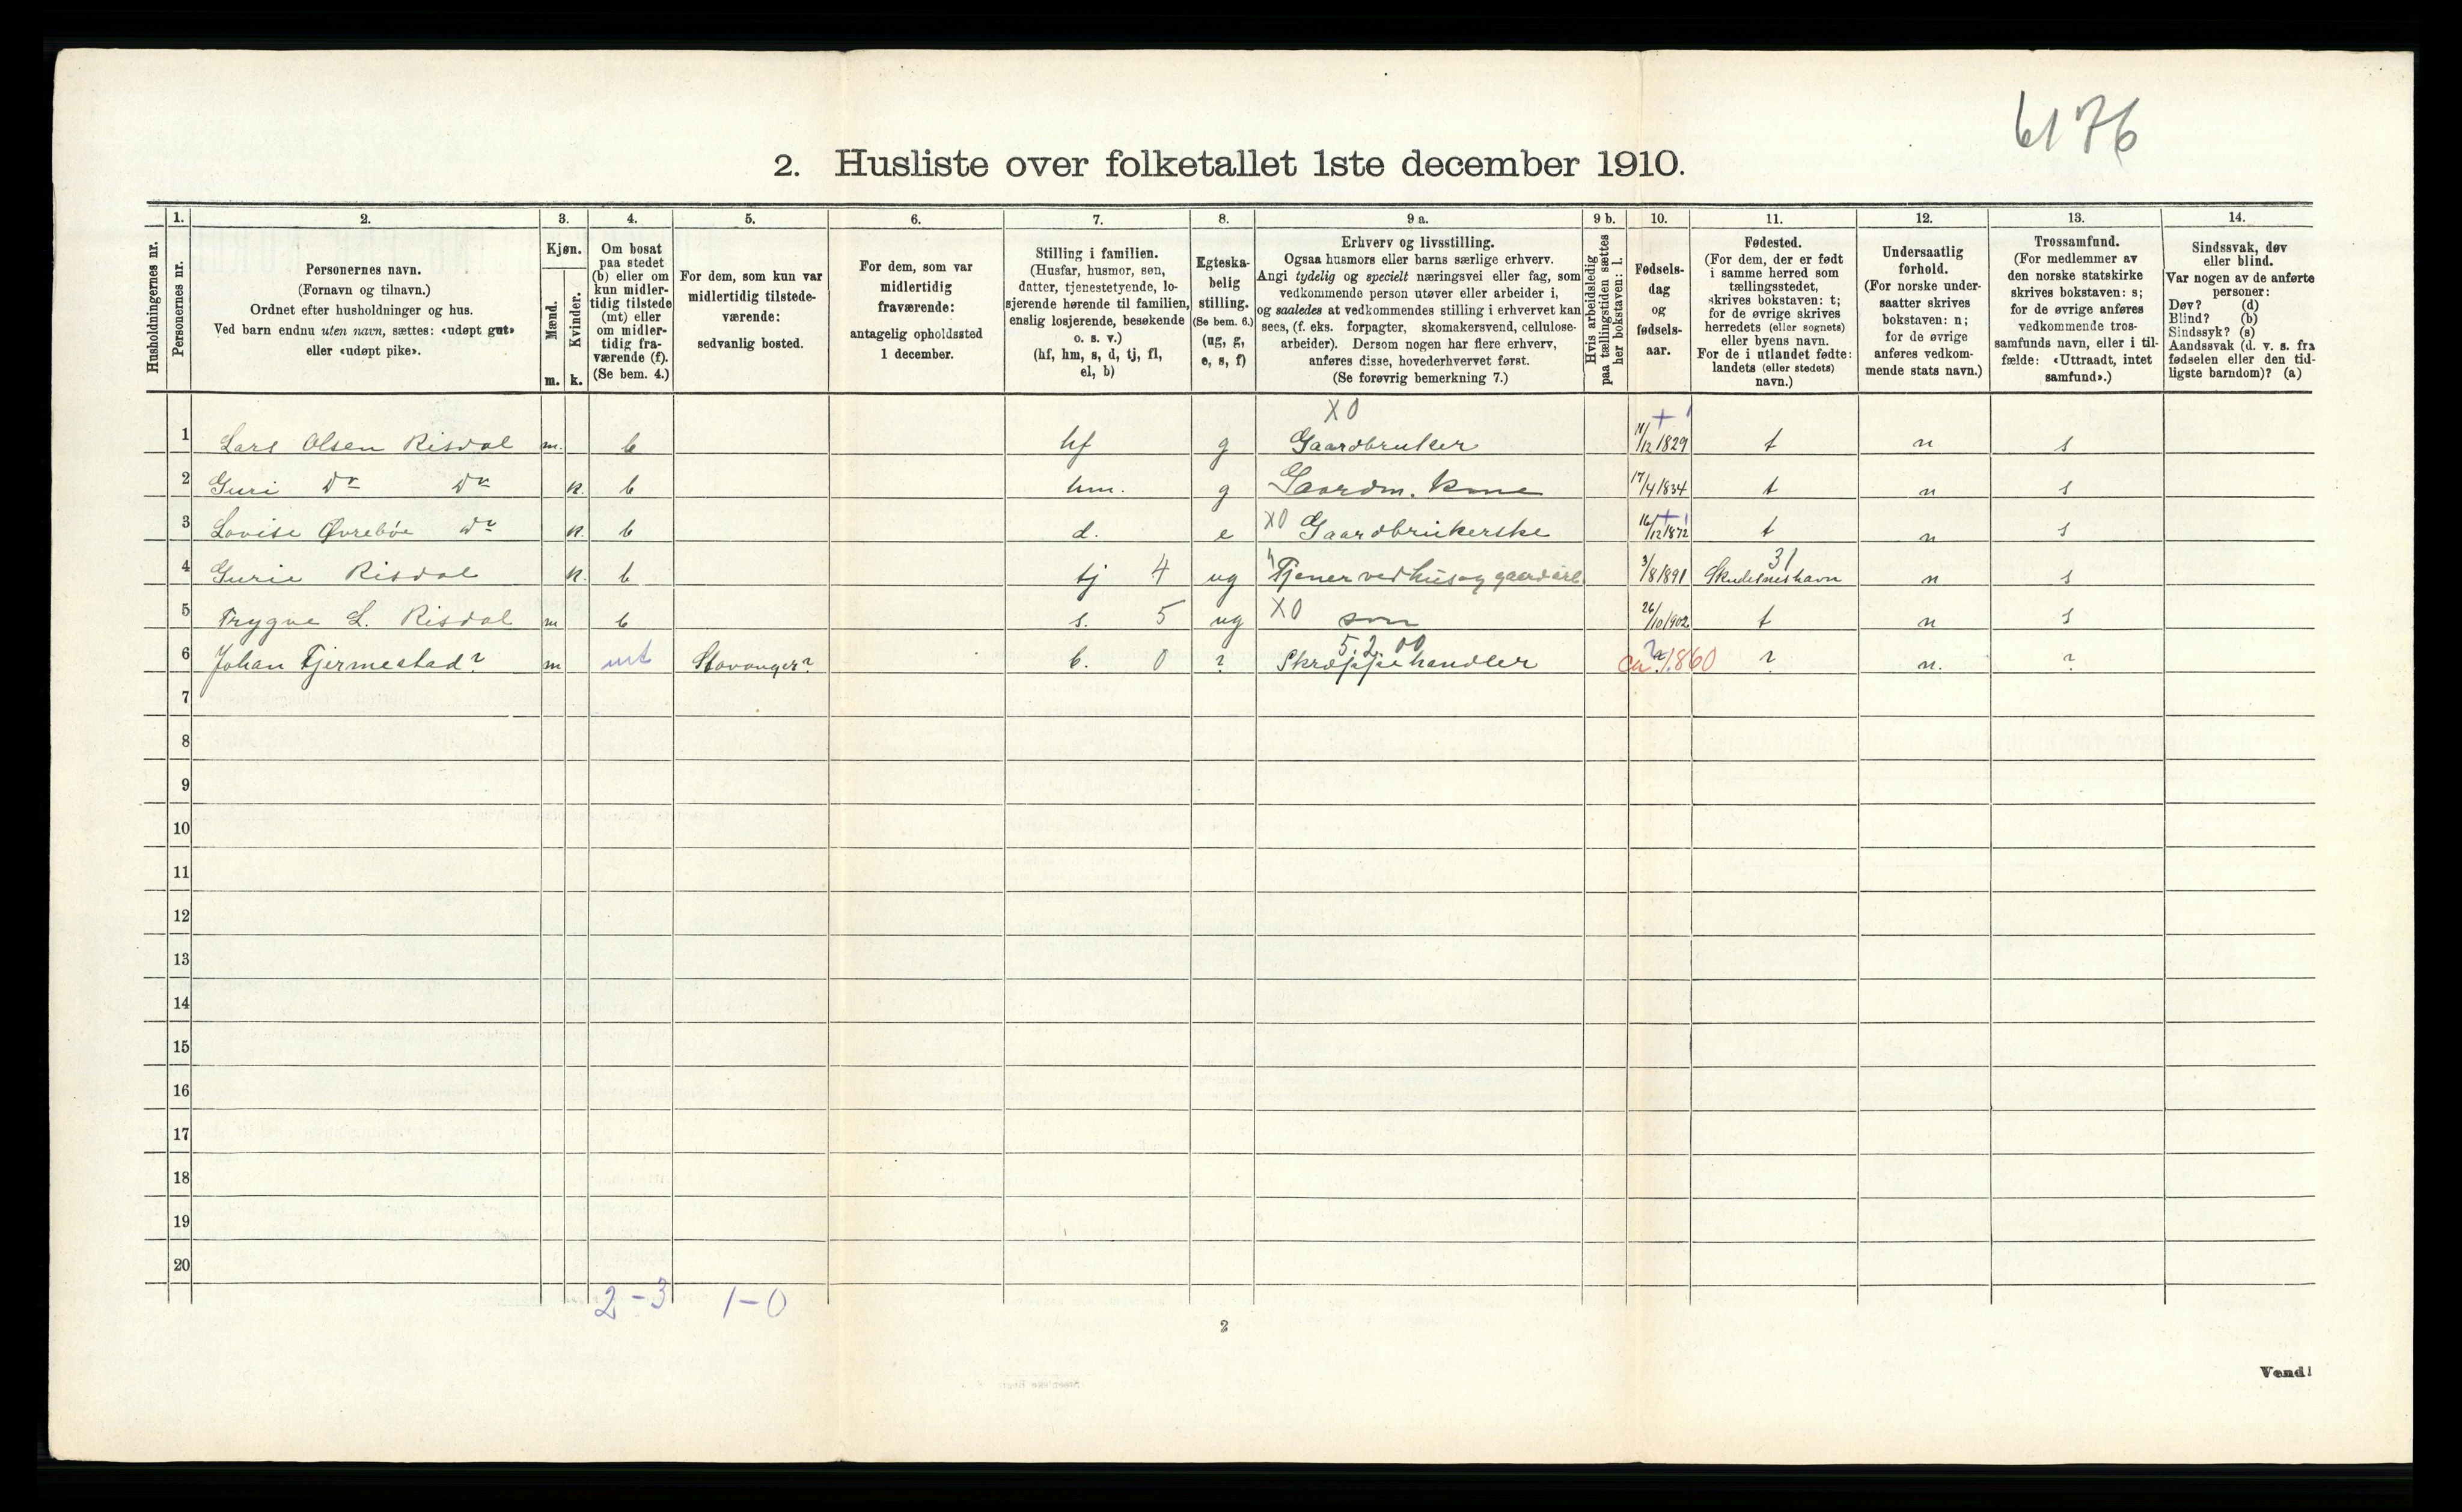 6176
2. Husliste over folketallet 1ste december 1910.
Husholdningernes nr.
1. Personernes nr.
2. Personernes navn.
(Fornavn og tilnavn.)
Ordnet efter husholdninger og hus.
Ved barn endnu uten navn, sættes: «udøpt gut»
eller «udøpt pike».
3. Kjøn.
Mænd. m.
Kvinder. k.
4. Om bosat
paa stedet
(b) eller om
kun midler-
tidig tilstede
(mt) eller
om midler-
tidig fra-
værende (f).
(Se bem. 4.)
5. For dem, som kun var
midlertidig tilstede-
værende:
sedvanlig bosted.
6. For dem, som var
midlertidig
fraværende:
antagelig opholdssted
1 december.
7. Stilling i familien.
(Husfar, husmor, søn,
datter, tjenestetyende, lo-
sjerende hørende til familien,
enslig losjerende, besøkende
o. s. v.)
(hf, hm, s, d, tj, fl,
el, b)
8. Egteska-
belig
stilling.
(Se bem. 6.)
(ug, g,
e, s, f)
9 a. Erhverv og livsstilling.
Ogsaa husmors eller barns særlige erhverv.
Angi tydelig og specielt næringsvei eller fag, som
vedkommende person utøver eller arbeider i,
og saaledes at vedkommendes stilling i erhvervet kan
sees, (f. eks. forpagter, skomakersvend, cellulose-
arbeider). Dersom nogen har flere erhverv,
anføres disse, hovederhvervet først.
(Se forøvrig bemerkning 7.)
9 b. Hvis arbeidsledig
paa tællingstiden sættes
her bokstaven: l.
10. Fødsels-
dag
og
fødsels-
aar.
11. Fødested.
(For dem, der er født
i samme herred som
tællingsstedet,
skrives bokstaven: t;
for de øvrige skrives
herredets (eller sognets)
eller byens navn.
For de i utlandet fødte:
landets (eller stedets)
navn.)
12. Undersaatlig
forhold.
(For norske under-
saatter skrives
bokstaven: n;
for de øvrige
anføres vedkom-
mende stats navn.)
13. Trossamfund.
(For medlemmer av
den norske statskirke
skrives bokstaven: s;
for de øvrige anføres
vedkommende tros-
samfunds navn, eller i til-
fælde: «Uttraadt, intet
samfund».)
14. Sindssvak, døv
eller blind.
Var nogen av de anførte
personer:
Døv? (d)
Blind? (b)
Sindssyk? (s)
Aandssvak (d. v. s. fra
fødselen eller den tid-
ligste barndom)? (a)
X 0
1 Lars Olsen Risdal m. b hf g Gaardbruker 11/12 1829 t n s
2 Guri Do Do k. b hm. g Gaardm. kone 17/4 1834 t n s
3 Lovise Øvrebøe do k. b d. e X0 Gaardbrukerske 16/12 1872 t n s
31
4 Gurie Risdal k. b tj 4 ug Tjener ved hus og gaardarb 3/8 1891 Skudesneshavn n s
5 Trygve L. Risdal m b s. 5 ug X0 søn 26/10 1902 t n s
5.2.00
6 Johan Tjermestad? m mt Stavanger? b. 0 ? Skræppehandler ca. 1860 ? n. ?
7
8
9
10
11
12
13
14
15
16
17
18
19
20
2-3 1-0
2
Vend!